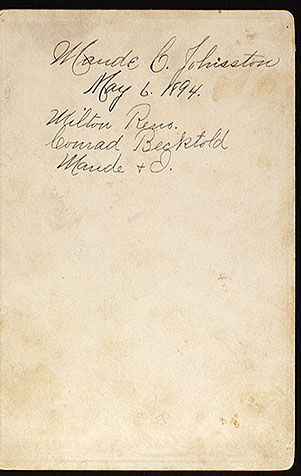 Maude C. Johnston
May 6. 1894.
Milton Reno.
Conrad Becktold
Maude + I.